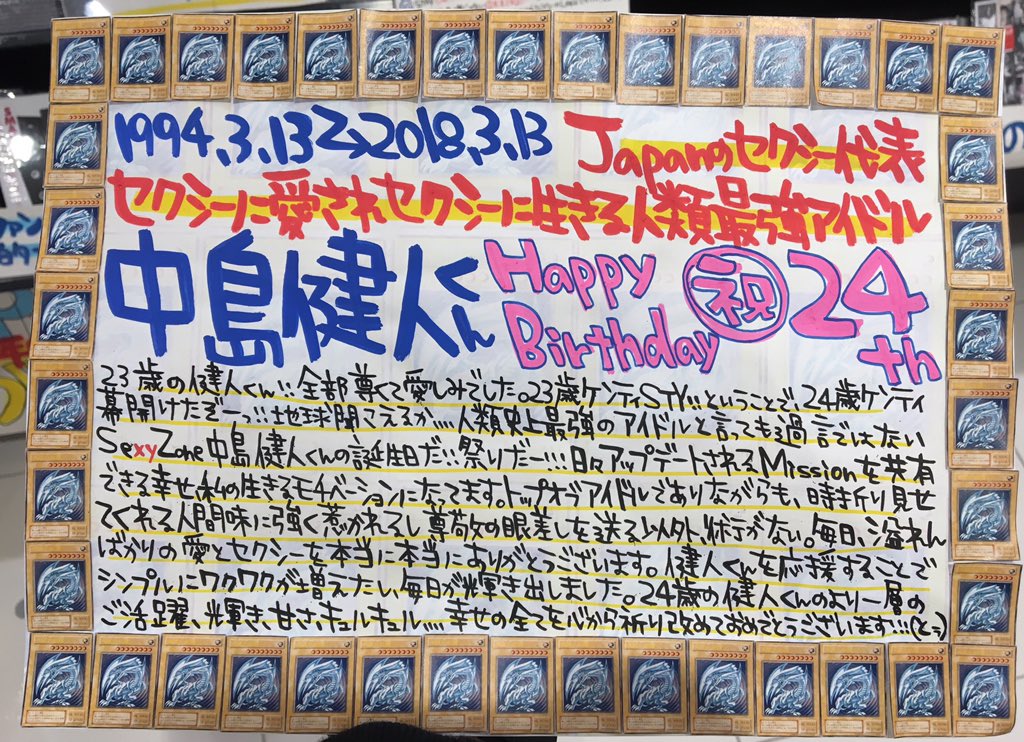 1994.3.13→2018.3.13
Japanのセクシー代表
セクシーに愛されセクシーに生きる人類最強アイドル
中島健人くん
Happy
Birthday
祝
24
th
23歳の健人くん!!全部尊くて愛しみでした。23歳ケンティSTY!!ということで、24歳ケンティ
幕開けたぞーっ!!!地球聞こえるか、、、、人類史上最強のアイドルと言っても過言ではない
Sexy Zone中島健人くんの誕生日だ!!祭りだー!!!日々アップデートされるMissionを共有
できる幸せ私の生きるモチベーションになってます。トップオブアイドルでありながらも、時折り見せ
てくれる人間味に強く惹かれるし尊敬の眼差しを送る以外、術がない。毎日、溢れん
ばかりの愛とセクシーを本当に本当にありがとうございます。健人くんを応援することで
シンプルにワクワクが増えたい、毎日が光輝き出しました。24歳の健人くんのより一層の
ご活躍、光輝き、甘さ、キュルキュル、、、、幸せの全てを心から祈り改めておめでとうございます!!!(とう)